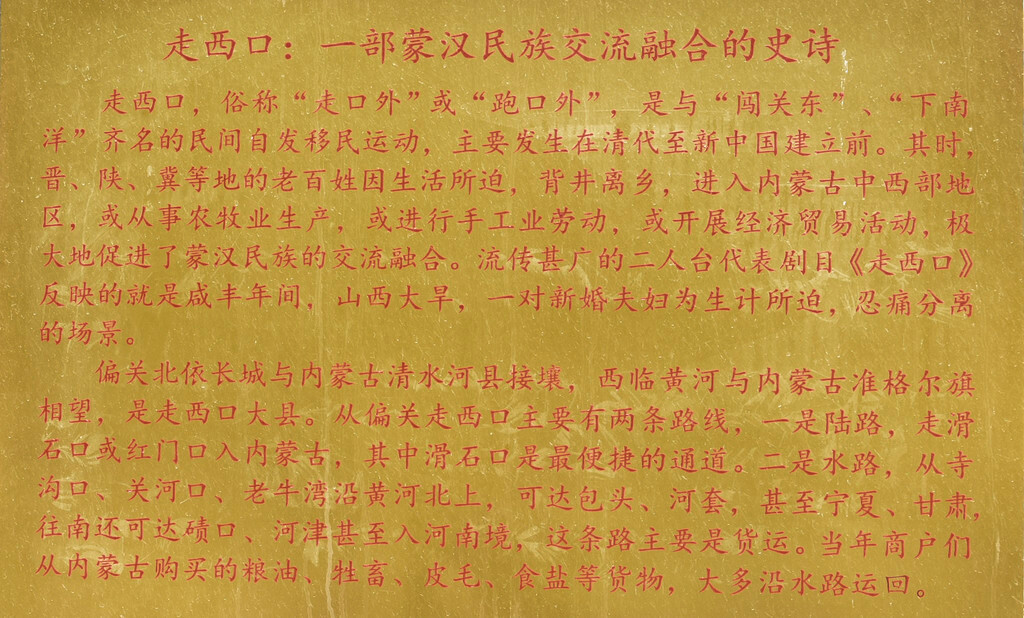 走西口：一部蒙汉民族交流融合的史诗
走西口，俗称“走口外”或“跑口外”，是与“闯关东”、“下南
洋”齐名的民间自发移民运动，主要发生在清代至新中国建立前。其时，
晋、陕、冀等地的老百姓因生活所迫，背井离乡，进入内蒙古中西部地
区，或从事农牧业生产，或进行手工业劳动，或开展经济贸易活动，极
大地促进了蒙汉民族的交流融合。流传甚广的二人台代表剧目《走西口》
反映的就是咸丰年间，山西大旱，一对新婚夫妇为生计所迫，忍痛分离
的场景。
偏关北依长城与内蒙古清水河县接壤，西临黄河与内蒙古准格尔旗
相望，是走西口大县。从偏关走西口主要有两条路线，一是陆路，走滑
石口或红门口入内蒙古，其中滑石口是最便捷的通道。二是水路，从寺
沟口、关河口、老牛湾沿黄河北上，可达包头、河套，甚至宁夏、甘肃，
往南还可达碛口、河津甚至入河南境，这条路主要是货运。当年商户们
从内蒙古购买的粮油、牲畜、皮毛、食盐等货物，大多沿水路运回。